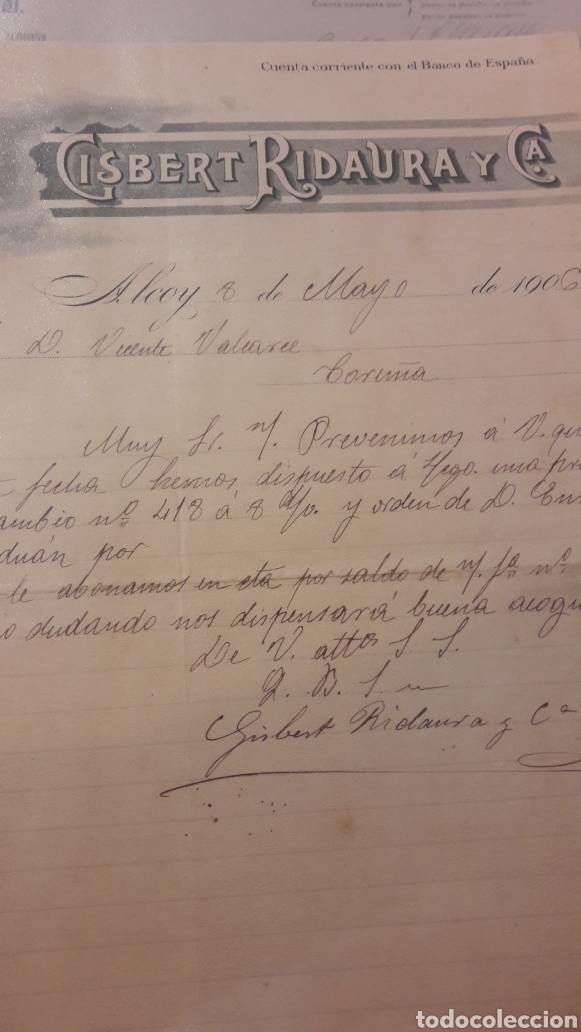 Cuenta corriente con el Banco de España.
GISBERT RIDAURA Y CA.
Alcoy 8 de Mayo de 1906
D. Vicente Valcarce
Coruña
Muy Sr. n/. Prevenimos á V. qu
fecha hemos dispuesto á s/cgo. una pr
ambio nº 418 á 8 d/v. y orden de D. Em
duán por
le abonamos en cta por saldo de n/. fª nº
o dudando nos dispensará buena acogi
De V. attos S. S.
Q. B. S. m
Gisbert Ridaura y Cª
todocoleccion
todocoleccion.net